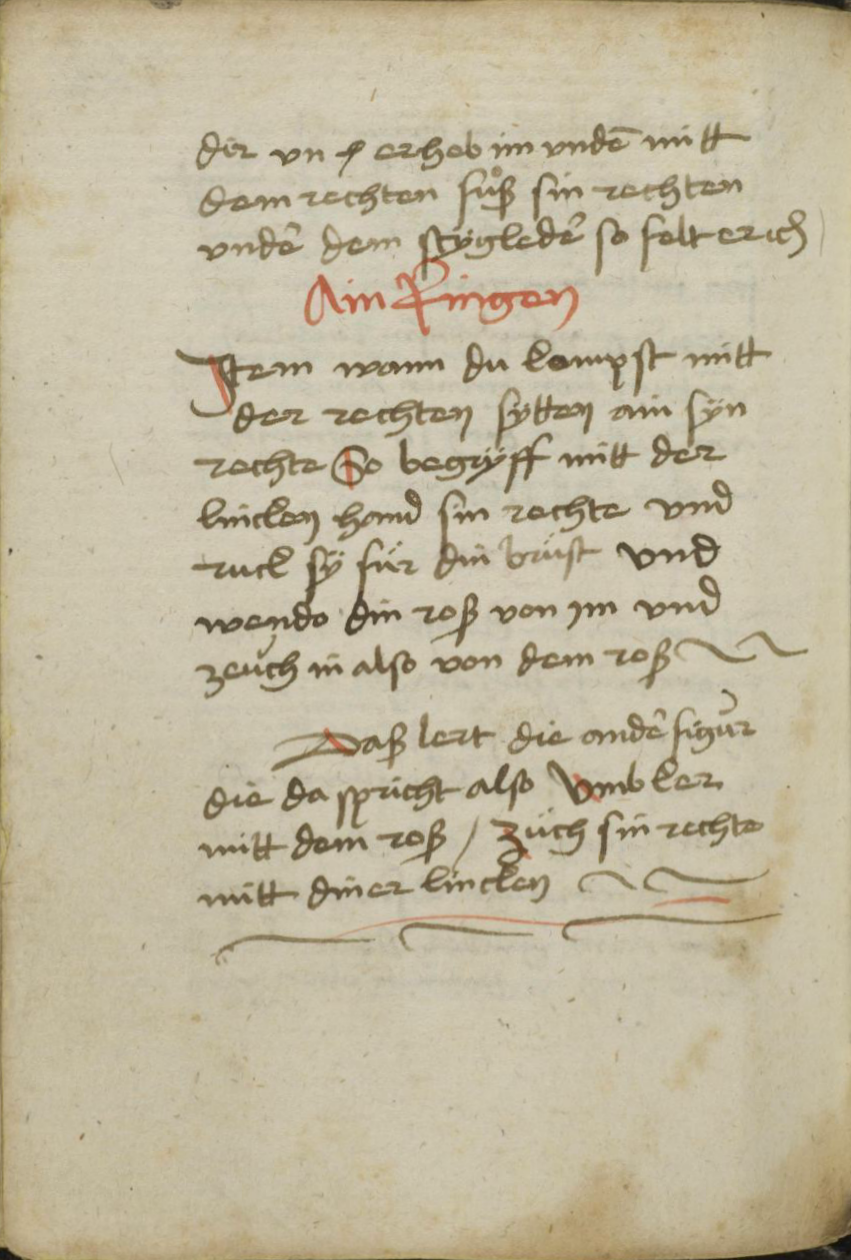 dir vn erheb im vndē mitt
dem rechten fůß sin rechten
vnder dem stÿgleder so felt er ich
Ain Ringen
Jtem wann du kompst mitt
der rechten sÿtten ain sÿn
rechte So begrÿff mitt der
lincken hand sin rechte vnd
ruck sÿ für din brüst vnd
wende din roß von jm vnd
zeuch in also von dem roß
Daß lert die ander figur
die da spricht also Vmb ker
mitt dem roß / züch sin rechte
mitt diner lincken